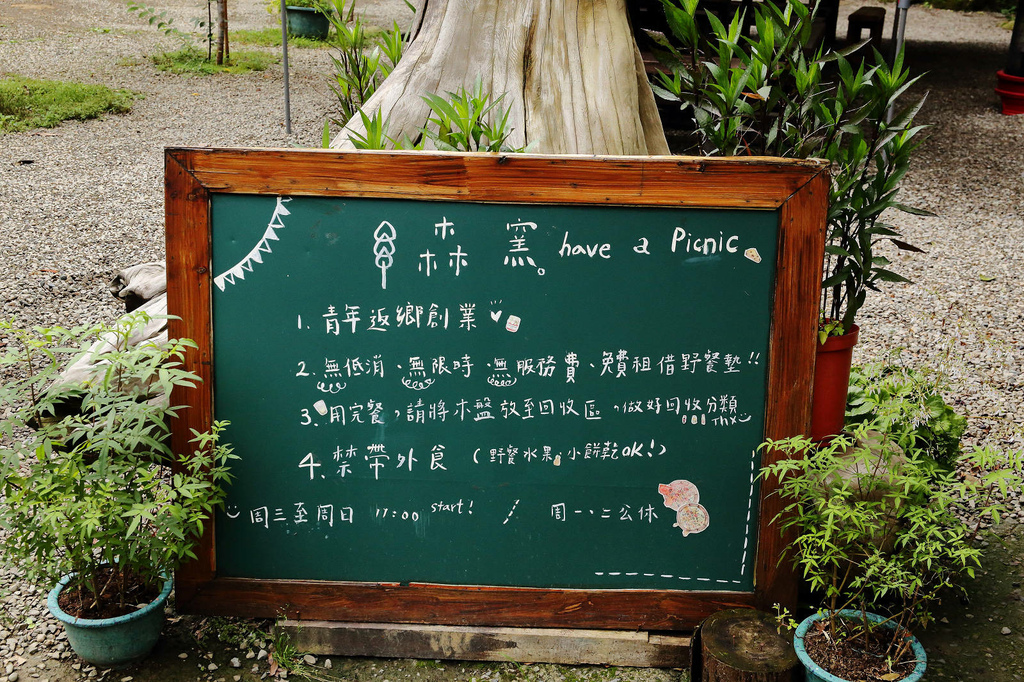 森窯。have a Picnic
1. 青年返鄉創業
2. 無低消、無限時、無服務費、免費租借野餐墊!!
3. 用完餐，請將木盤放至回收區，做好回收分類 Thx
4. 禁帶外食 (野餐水果、小餅乾OK!)
周三至周日 11:00 start! / 周一、二公休